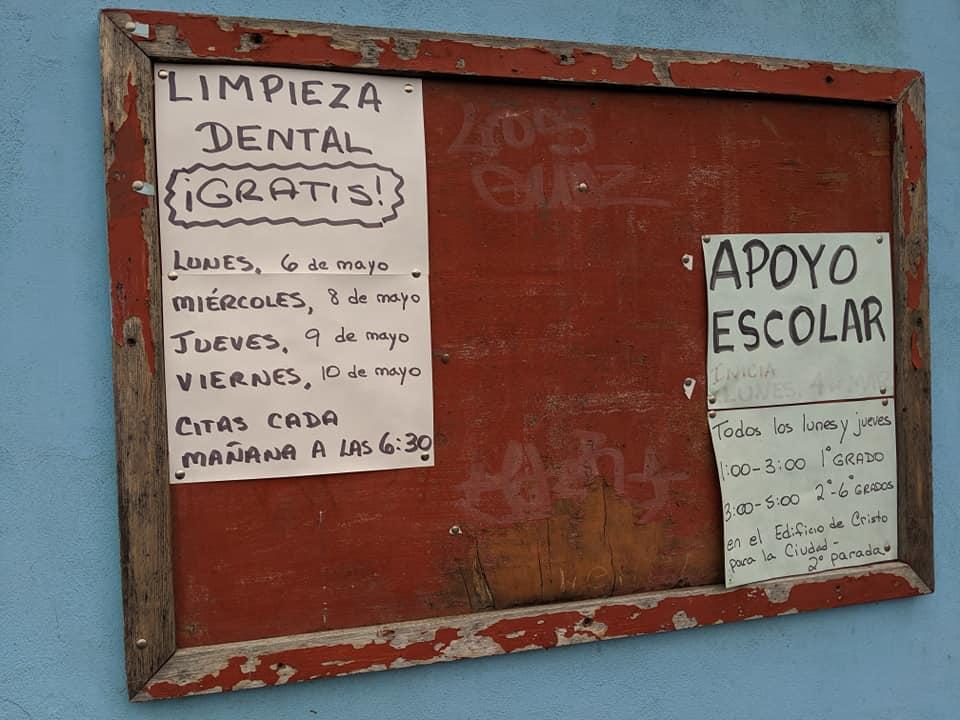 LIMPIEZA
DENTAL
¡GRATIS!
LUNES, 6 de mayo
MIÉRCOLES, 8 de mayo
JUEVES, 9 de mayo
VIERNES, 10 de mayo
CITAS CADA
MAÑANA A LAS 6:30
APOYO
ESCOLAR
INICIA
LUNES, 4
Todos los lunes y jueves
1:00-3:00 1° GRADO
3:00-5:00 2°-6° GRADOS
en el Edificio de Cristo
para la Ciudad-
2° parada